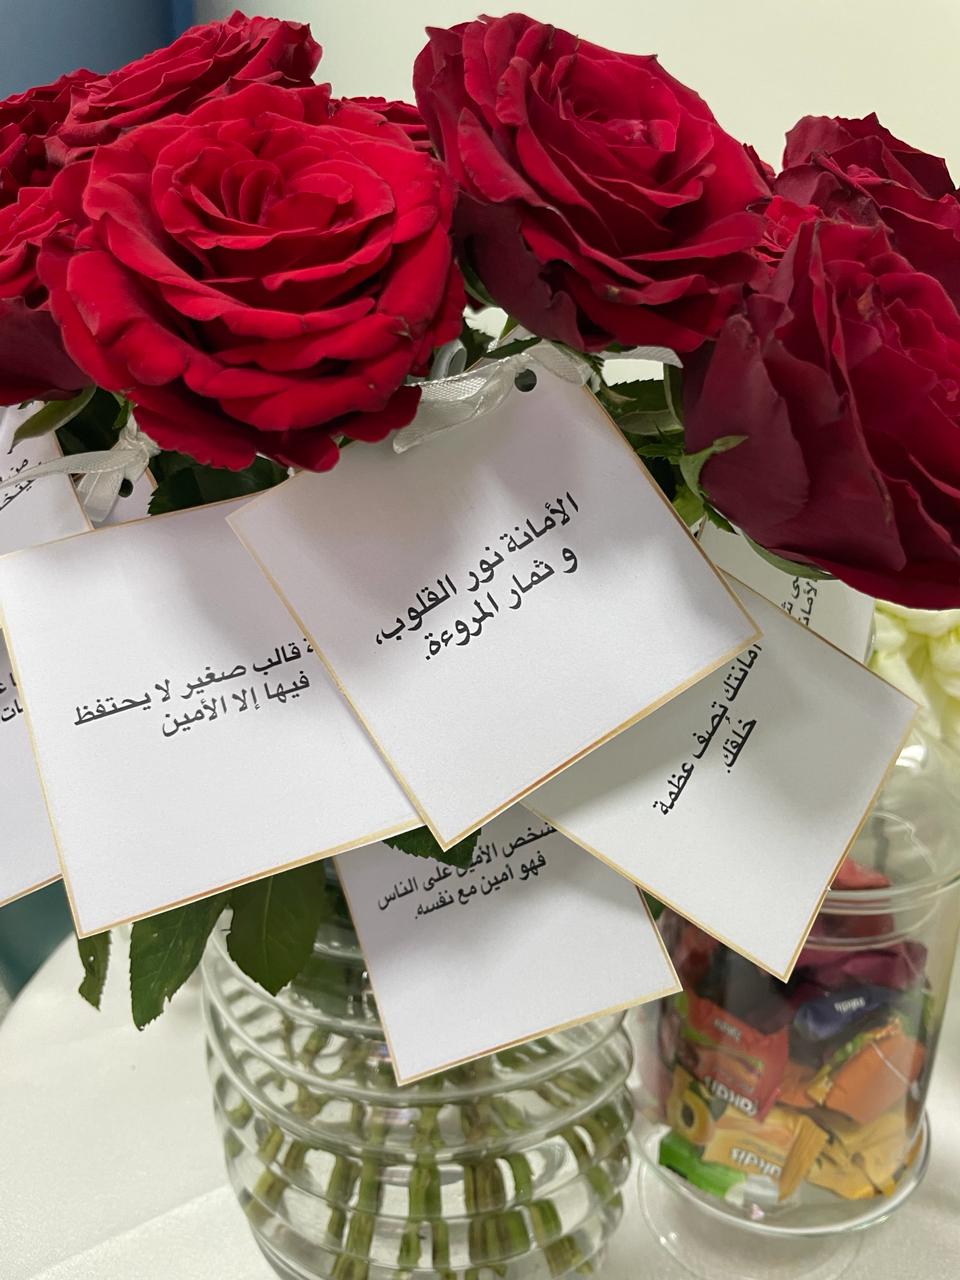 الأمانة نور القلوب،
و ثمار المروءة.
قالب صغير لا يحتفظ
فيها إلا الأمين
أمانتك تصف عظمة
خلقك.
الأمين على الناس
فهو أمين مع نفسه.